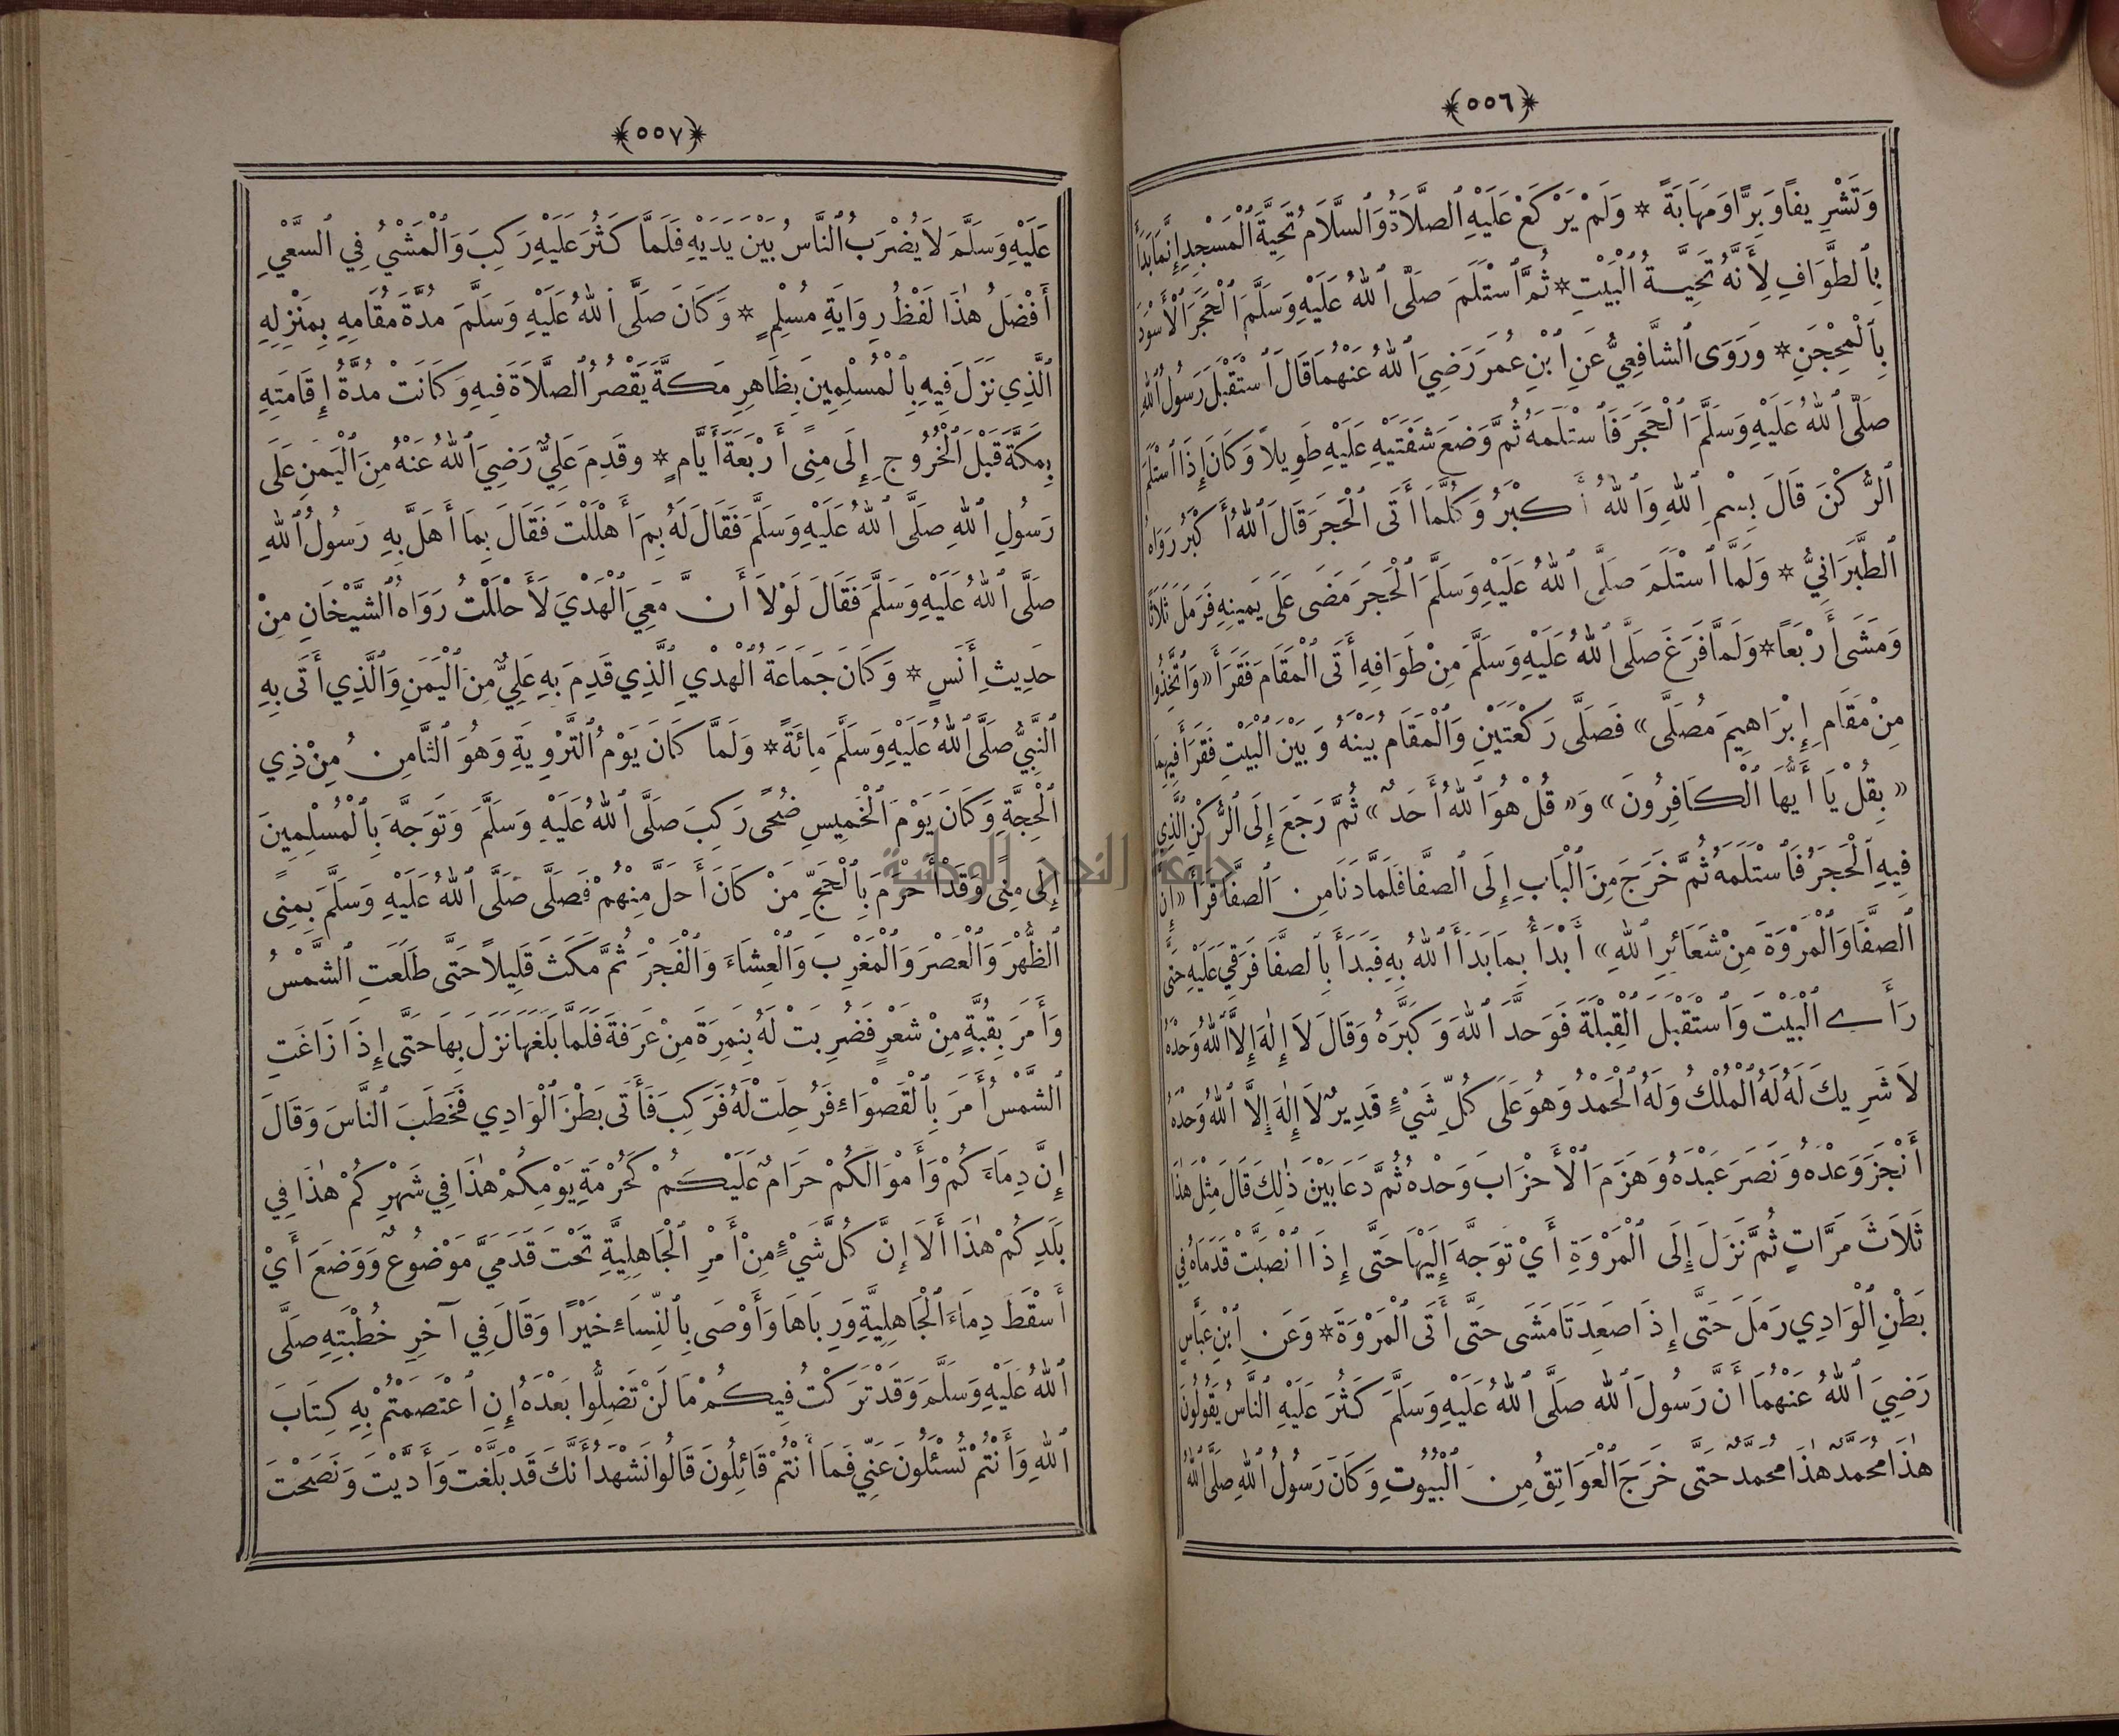 ﴿٥٥٦﴾
وَتَشْرِيفًا وَبِرًّا وَمَهَابَةً * وَلَمْ يَرْكَعْ عَلَيْهِ ٱلصَّلَاةُ وَٱلسَّلَامُ تَحِيَّةَ ٱلْمَسْجِدِ إِنَّمَا بَدَأَ
بِٱلطَّوَافِ لِأَنَّهُ تَحِيَّةُ ٱلْبَيْتِ * ثُمَّ ٱسْتَلَمَ صَلَّى ٱللهُ عَلَيْهِ وَسَلَّمَ ٱلْحَجَرَ ٱلْأَسْوَدَ
بِٱلْمِحْجَنِ * وَرَوَى ٱلشَّافِعِيُّ عَنِ ٱبْنِ عُمَرَ رَضِيَ ٱللهُ عَنْهُمَا قَالَ ٱسْتَقْبَلَ رَسُولُ ٱللهِ
صَلَّى ٱللهُ عَلَيْهِ وَسَلَّمَ ٱلْحَجَرَ فَٱسْتَلَمَهُ ثُمَّ وَضَعَ شَفَتَيْهِ عَلَيْهِ طَوِيلًا وَكَانَ إِذَا ٱسْتَلَمَ
ٱلرُّكْنَ قَالَ بِسْمِ ٱللهِ وَٱللهُ أَكْبَرُ وَكُلَّمَا أَتَى ٱلْحَجَرَ قَالَ ٱللهُ أَكْبَرُ رَوَاهُ
ٱلطَّبَرَانِيُّ * وَلَمَّا ٱسْتَلَمَ صَلَّى ٱللهُ عَلَيْهِ وَسَلَّمَ ٱلْحَجَرَ مَضَى عَلَى يَمِينِهِ فَرَمَلَ ثَلَاثًا
وَمَشَى أَرْبَعًا * وَلَمَّا فَرَغَ صَلَّى ٱللهُ عَلَيْهِ وَسَلَّمَ مِنْ طَوَافِهِ أَتَى ٱلْمَقَامَ فَقَرَأَ «وَٱتَّخِذُوا
مِنْ مَقَامِ إِبْرَاهِيمَ مُصَلًّى» فَصَلَّى رَكْعَتَيْنِ وَٱلْمَقَامُ بَيْنَهُ وَبَيْنَ ٱلْبَيْتِ فَقَرَأَ فِيهِمَا
«بِقُلْ يَا أَيُّهَا ٱلْكَافِرُونَ» وَ«قُلْ هُوَ ٱللهُ أَحَدٌ» ثُمَّ رَجَعَ إِلَى ٱلرُّكْنِ ٱلَّذِي
فِيهِ ٱلْحَجَرُ فَٱسْتَلَمَهُ ثُمَّ خَرَجَ مِنَ ٱلْبَابِ إِلَى ٱلصَّفَا فَلَمَّا دَنَا مِنَ ٱلصَّفَا قَرَأَ «إِنَّ
ٱلصَّفَا وَٱلْمَرْوَةَ مِنْ شَعَائِرِ ٱللهِ» أَبْدَأُ بِمَا بَدَأَ ٱللهُ بِهِ فَبَدَأَ بِٱلصَّفَا فَرَقِيَ عَلَيْهِ حَتَّى
رَأَى ٱلْبَيْتَ وَٱسْتَقْبَلَ ٱلْقِبْلَةَ فَوَحَّدَ ٱللهَ وَكَبَّرَهُ وَقَالَ لَا إِلٰهَ إِلَّا ٱللهُ وَحْدَهُ
لَا شَرِيكَ لَهُ لَهُ ٱلْمُلْكُ وَلَهُ ٱلْحَمْدُ وَهُوَ عَلَى كُلِّ شَيْءٍ قَدِيرٌ لَا إِلٰهَ إِلَّا ٱللهُ وَحْدَهُ
أَنْجَزَ وَعْدَهُ وَنَصَرَ عَبْدَهُ وَهَزَمَ ٱلْأَحْزَابَ وَحْدَهُ ثُمَّ دَعَا بَيْنَ ذٰلِكَ قَالَ مِثْلَ هٰذَا
ثَلَاثَ مَرَّاتٍ ثُمَّ نَزَلَ إِلَى ٱلْمَرْوَةِ أَيْ تَوَجَّهَ إِلَيْهَا حَتَّى إِذَا ٱنْصَبَّتْ قَدَمَاهُ فِي
بَطْنِ ٱلْوَادِي رَمَلَ حَتَّى إِذَا صَعِدَتَا مَشَى حَتَّى أَتَى ٱلْمَرْوَةَ * وَعَنِ ٱبْنِ عَبَّاسٍ
رَضِيَ ٱللهُ عَنْهُمَا أَنَّ رَسُولَ ٱللهِ صَلَّى ٱللهُ عَلَيْهِ وَسَلَّمَ كَثُرَ عَلَيْهِ ٱلنَّاسُ يَقُولُونَ
هٰذَا مُحَمَّدٌ هٰذَا مُحَمَّدٌ حَتَّى خَرَجَ ٱلْعَوَاتِقُ مِنَ ٱلْبُيُوتِ وَكَانَ رَسُولُ ٱللهِ صَلَّى ٱللهُ
﴿٥٥٧﴾
عَلَيْهِ وَسَلَّمَ لَا يُضْرَبُ ٱلنَّاسُ بَيْنَ يَدَيْهِ فَلَمَّا كَثُرَ عَلَيْهِ رَكِبَ وَٱلْمَشْيُ فِي ٱلسَّعْيِ
أَفْضَلُ هٰذَا لَفْظُ رِوَايَةِ مُسْلِمٍ * وَكَانَ صَلَّى ٱللهُ عَلَيْهِ وَسَلَّمَ مُدَّةَ مُقَامِهِ بِمَنْزِلِهِ
ٱلَّذِي نَزَلَ فِيهِ بِٱلْمُسْلِمِينَ بِظَاهِرِ مَكَّةَ يَقْصُرُ ٱلصَّلَاةَ فِيهِ وَكَانَتْ مُدَّةُ إِقَامَتِهِ
بِمَكَّةَ قَبْلَ ٱلْخُرُوجِ إِلَى مِنًى أَرْبَعَةَ أَيَّامٍ * وَقَدِمَ عَلِيٌّ رَضِيَ ٱللهُ عَنْهُ مِنَ ٱلْيَمَنِ عَلَى
رَسُولِ ٱللهِ صَلَّى ٱللهُ عَلَيْهِ وَسَلَّمَ فَقَالَ لَهُ بِمَ أَهْلَلْتَ فَقَالَ بِمَا أَهَلَّ بِهِ رَسُولُ ٱللهِ
صَلَّى ٱللهُ عَلَيْهِ وَسَلَّمَ فَقَالَ لَوْلَا أَنَّ مَعِيَ ٱلْهَدْيَ لَأَحْلَلْتُ رَوَاهُ ٱلشَّيْخَانِ مِنْ
حَدِيثِ أَنَسٍ * وَكَانَ جَمَاعَةُ ٱلْهَدْيِ ٱلَّذِي قَدِمَ بِهِ عَلِيٌّ مِنَ ٱلْيَمَنِ وَٱلَّذِي أَتَى بِهِ
ٱلنَّبِيُّ صَلَّى ٱللهُ عَلَيْهِ وَسَلَّمَ مِائَةً * وَلَمَّا كَانَ يَوْمُ ٱلتَّرْوِيَةِ وَهُوَ ٱلثَّامِنُ مِنْ ذِي
ٱلْحِجَّةِ وَكَانَ يَوْمَ ٱلْخَمِيسِ ضُحًى رَكِبَ صَلَّى ٱللهُ عَلَيْهِ وَسَلَّمَ وَتَوَجَّهَ بِٱلْمُسْلِمِينَ
إِلَى مِنًى وَقَدْ أَحْرَمَ بِٱلْحَجِّ مَنْ كَانَ أَحَلَّ مِنْهُمْ فَصَلَّى صَلَّى ٱللهُ عَلَيْهِ وَسَلَّمَ بِمِنًى
ٱلظُّهْرَ وَٱلْعَصْرَ وَٱلْمَغْرِبَ وَٱلْعِشَاءَ وَٱلْفَجْرَ ثُمَّ مَكَثَ قَلِيلًا حَتَّى طَلَعَتِ ٱلشَّمْسُ
وَأَمَرَ بِقُبَّةٍ مِنْ شَعْرٍ فَضُرِبَتْ لَهُ بِنَمِرَةَ مِنْ عَرَفَةَ فَلَمَّا بَلَغَهَا نَزَلَ بِهَا حَتَّى إِذَا زَاغَتِ
ٱلشَّمْسُ أَمَرَ بِٱلْقَصْوَاءِ فَرُحِلَتْ لَهُ فَرَكِبَ فَأَتَى بَطْنَ ٱلْوَادِي فَخَطَبَ ٱلنَّاسَ وَقَالَ
إِنَّ دِمَاءَكُمْ وَأَمْوَالَكُمْ حَرَامٌ عَلَيْكُمْ كَحُرْمَةِ يَوْمِكُمْ هٰذَا فِي شَهْرِكُمْ هٰذَا فِي
بَلَدِكُمْ هٰذَا أَلَا إِنَّ كُلَّ شَيْءٍ مِنْ أَمْرِ ٱلْجَاهِلِيَّةِ تَحْتَ قَدَمَيَّ مَوْضُوعٌ وَوَضَعَ أَيْ
أَسْقَطَ دِمَاءَ ٱلْجَاهِلِيَّةِ وَرِبَاهَا وَأَوْصَى بِٱلنِّسَاءِ خَيْرًا وَقَالَ فِي آخِرِ خُطْبَتِهِ صَلَّى
ٱللهُ عَلَيْهِ وَسَلَّمَ وَقَدْ تَرَكْتُ فِيكُمْ مَا لَنْ تَضِلُّوا بَعْدَهُ إِنِ ٱعْتَصَمْتُمْ بِهِ كِتَابَ
ٱللهِ وَأَنْتُمْ تُسْئَلُونَ عَنِّي فَمَا أَنْتُمْ قَائِلُونَ قَالُوا نَشْهَدُ أَنَّكَ قَدْ بَلَّغْتَ وَأَدَّيْتَ وَنَصَحْتَ
جامعة النجاح الوطنية